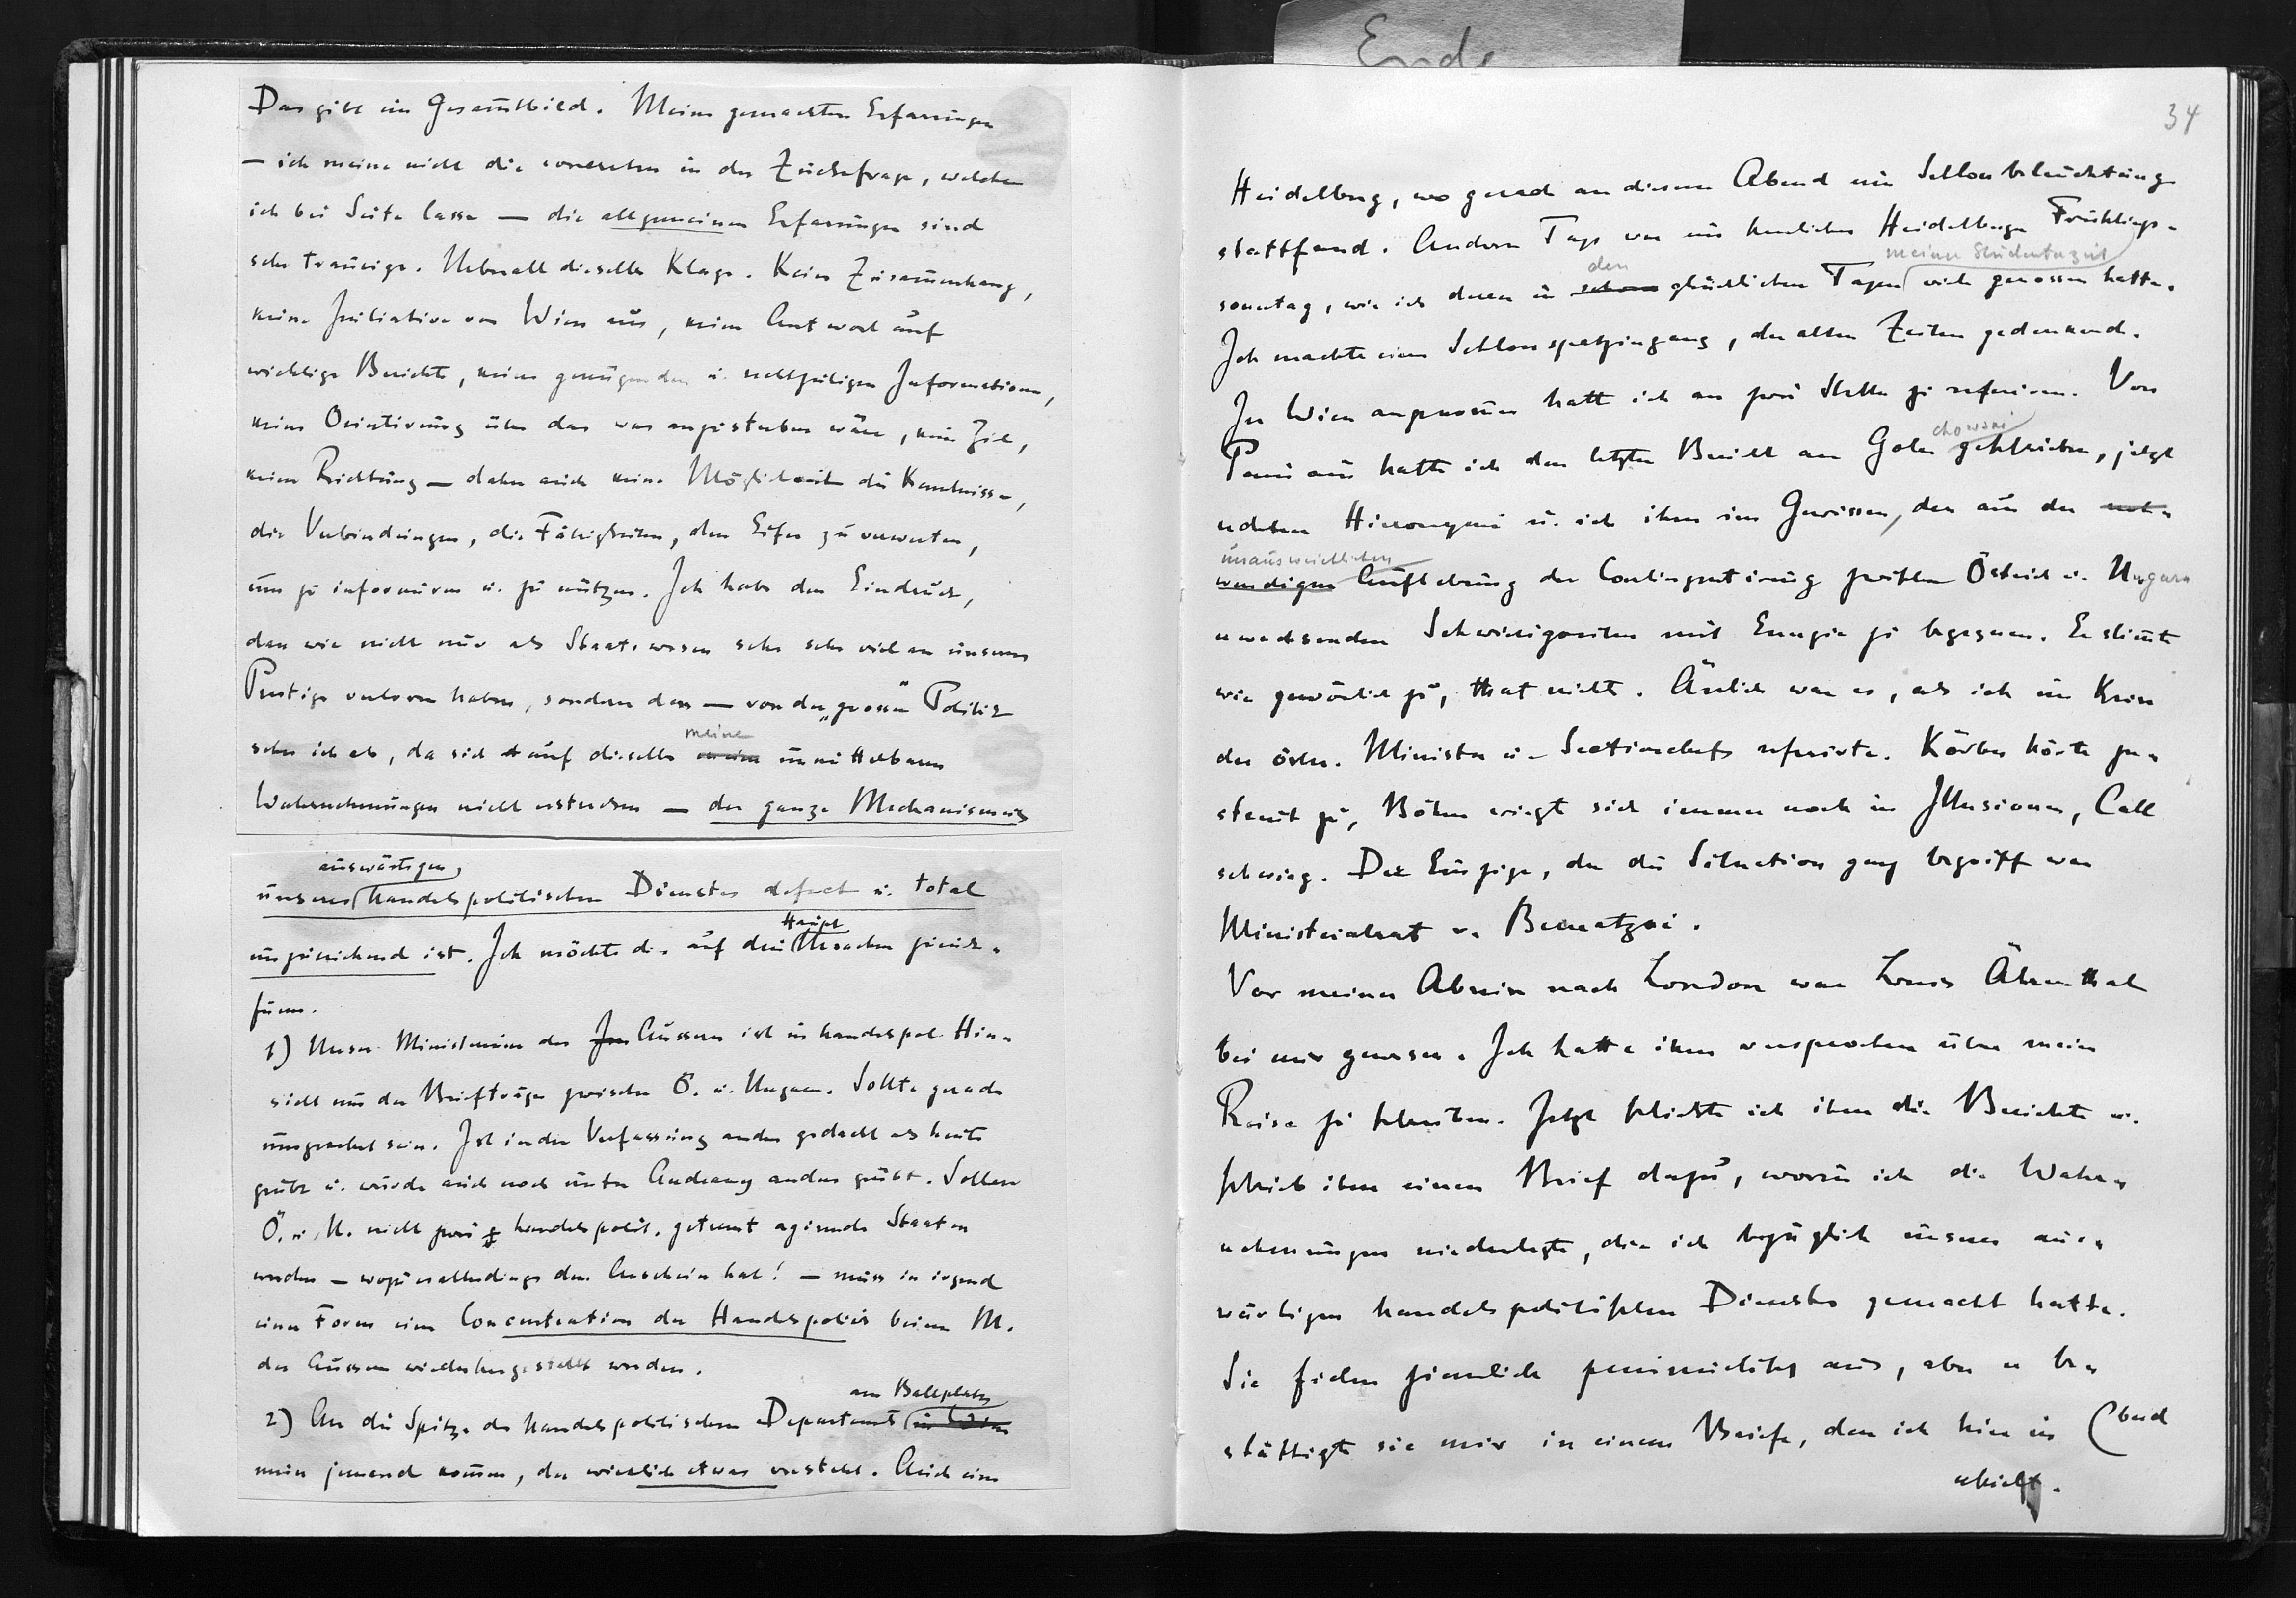 Ende
Das gibt ein Gesam̅tbild. Meine gemachten Erfarungen
— ich meine nicht die concreten in der Zuckerfrage, welche
ich bei Seite lasse — die allgemeinen Erfarungen sind
sehr traurige. Ueberall dieselbe Klage. Kein Zusam̅enhang,
keine Initiative von Wien aus, keine Antwort auf
wichtige Berichte, keine genügenden u. rechtzeitigen Informationen,
keine Orientirung über das was anzustreben wäre, kein Ziel,
keine Richtung — daher auch keine Möglichkeit die Kenntnisse,
die Verbindungen, die Fähigkeiten, den Eifer zu verwerten,
um zu informiren u. zu nützen. Ich habe den Eindruck,
dass wir nicht nur als Staatswesen sehr sehr viel an unserem
Prestige verloren haben, sondern dass — von der „grossen" Politik
meine
sehe ich ab, da sich auf dieselbe meine unmittelbaren
Wahrnehmungen nicht erstrecken — der ganze Mechanismus
auswärtigen,
unseres handelspolitischen Dienstes defect u. total
Haupt
unzureichend ist. Ich möchte dies auf drei Ursachen zurück-
füren.
1) Unser Ministerium des In Äussern ist in handelspol. Hin-
sicht nur der Briefträger zwischen Ö. u. Ungarn. Sollte gerade
umgekehrt sein. Ist in der Verfassung anders gedacht als heute
geübt u. wurde auch noch unter Andrassy anders geübt. Sollen
Ö. u. U. nicht zwei handelspolit. getrennt agirende Staaten
werden — wozu es allerdings den Anschein hat! — muss in irgend
einer Form eine Concentration der Handelspolitik beim M.
des Äussern wiederhergestellt werden.
am Ballplatz
2) An die Spitze des handelspolitischen Departements in Wien
muss jemand kom̅en, der wirklich etwas versteht. Auch ein
34
Heidelberg, wo gerade an diesem Abend eine Schlossbeleuchtung
stattfand. Andern Tags war ein herrlicher Heidelberger Frühlings-
den meiner Studentenzeit
sonntag, wie ich deren in schon glücklichen Tagen viele genossen hatte.
Ich machte einen Schlossspatziergang, der alten Zeiten gedenkend.
In Wien angekom̅en hatte ich an zwei Stellen zu referiren. Von
chowski
Paris aus hatte ich den letzten Bericht an Golu geschrieben, jetzt
redete Hieronymi u. ich ihm ins Gewissen, den aus der not-
unausweichlichen
wendigen Aufhebung der Contingentirung zwischen Österreich u. Ungarn
erwachsenden Schwierigkeiten mit Energie zu begegnen. Er stim̅te
wie gewönlich zu, that nichts. Änlich war es, als ich im Kreise
der österr. Minister u. Sectionschefs referirte. Körber hörte zer-
streut zu, Böhm wiegt sich immer noch in Illusionen, Call
schwieg. Der Einzige, der die Situation ganz begriff war
Ministerialrat v. Bernatzki.
Vor meiner Abreise nach London war Louis Ährenthal
bei mir gewesen. Ich hatte ihm versprochen über meine
Reise zu schreiben. Jetzt schickte ich ihm die Berichte u.
schrieb ihm einen Brief dazu, worin ich die Wahr-
nehmungen niederlegte, die ich bezüglich unseres aus-
wärtigen handelspolitischen Dienstes gemacht hatte.
Sie fielen ziemlich pessimistisch aus, aber er be-
stättigte sie mir in einem Briefe, den ich hier in
erhielt.